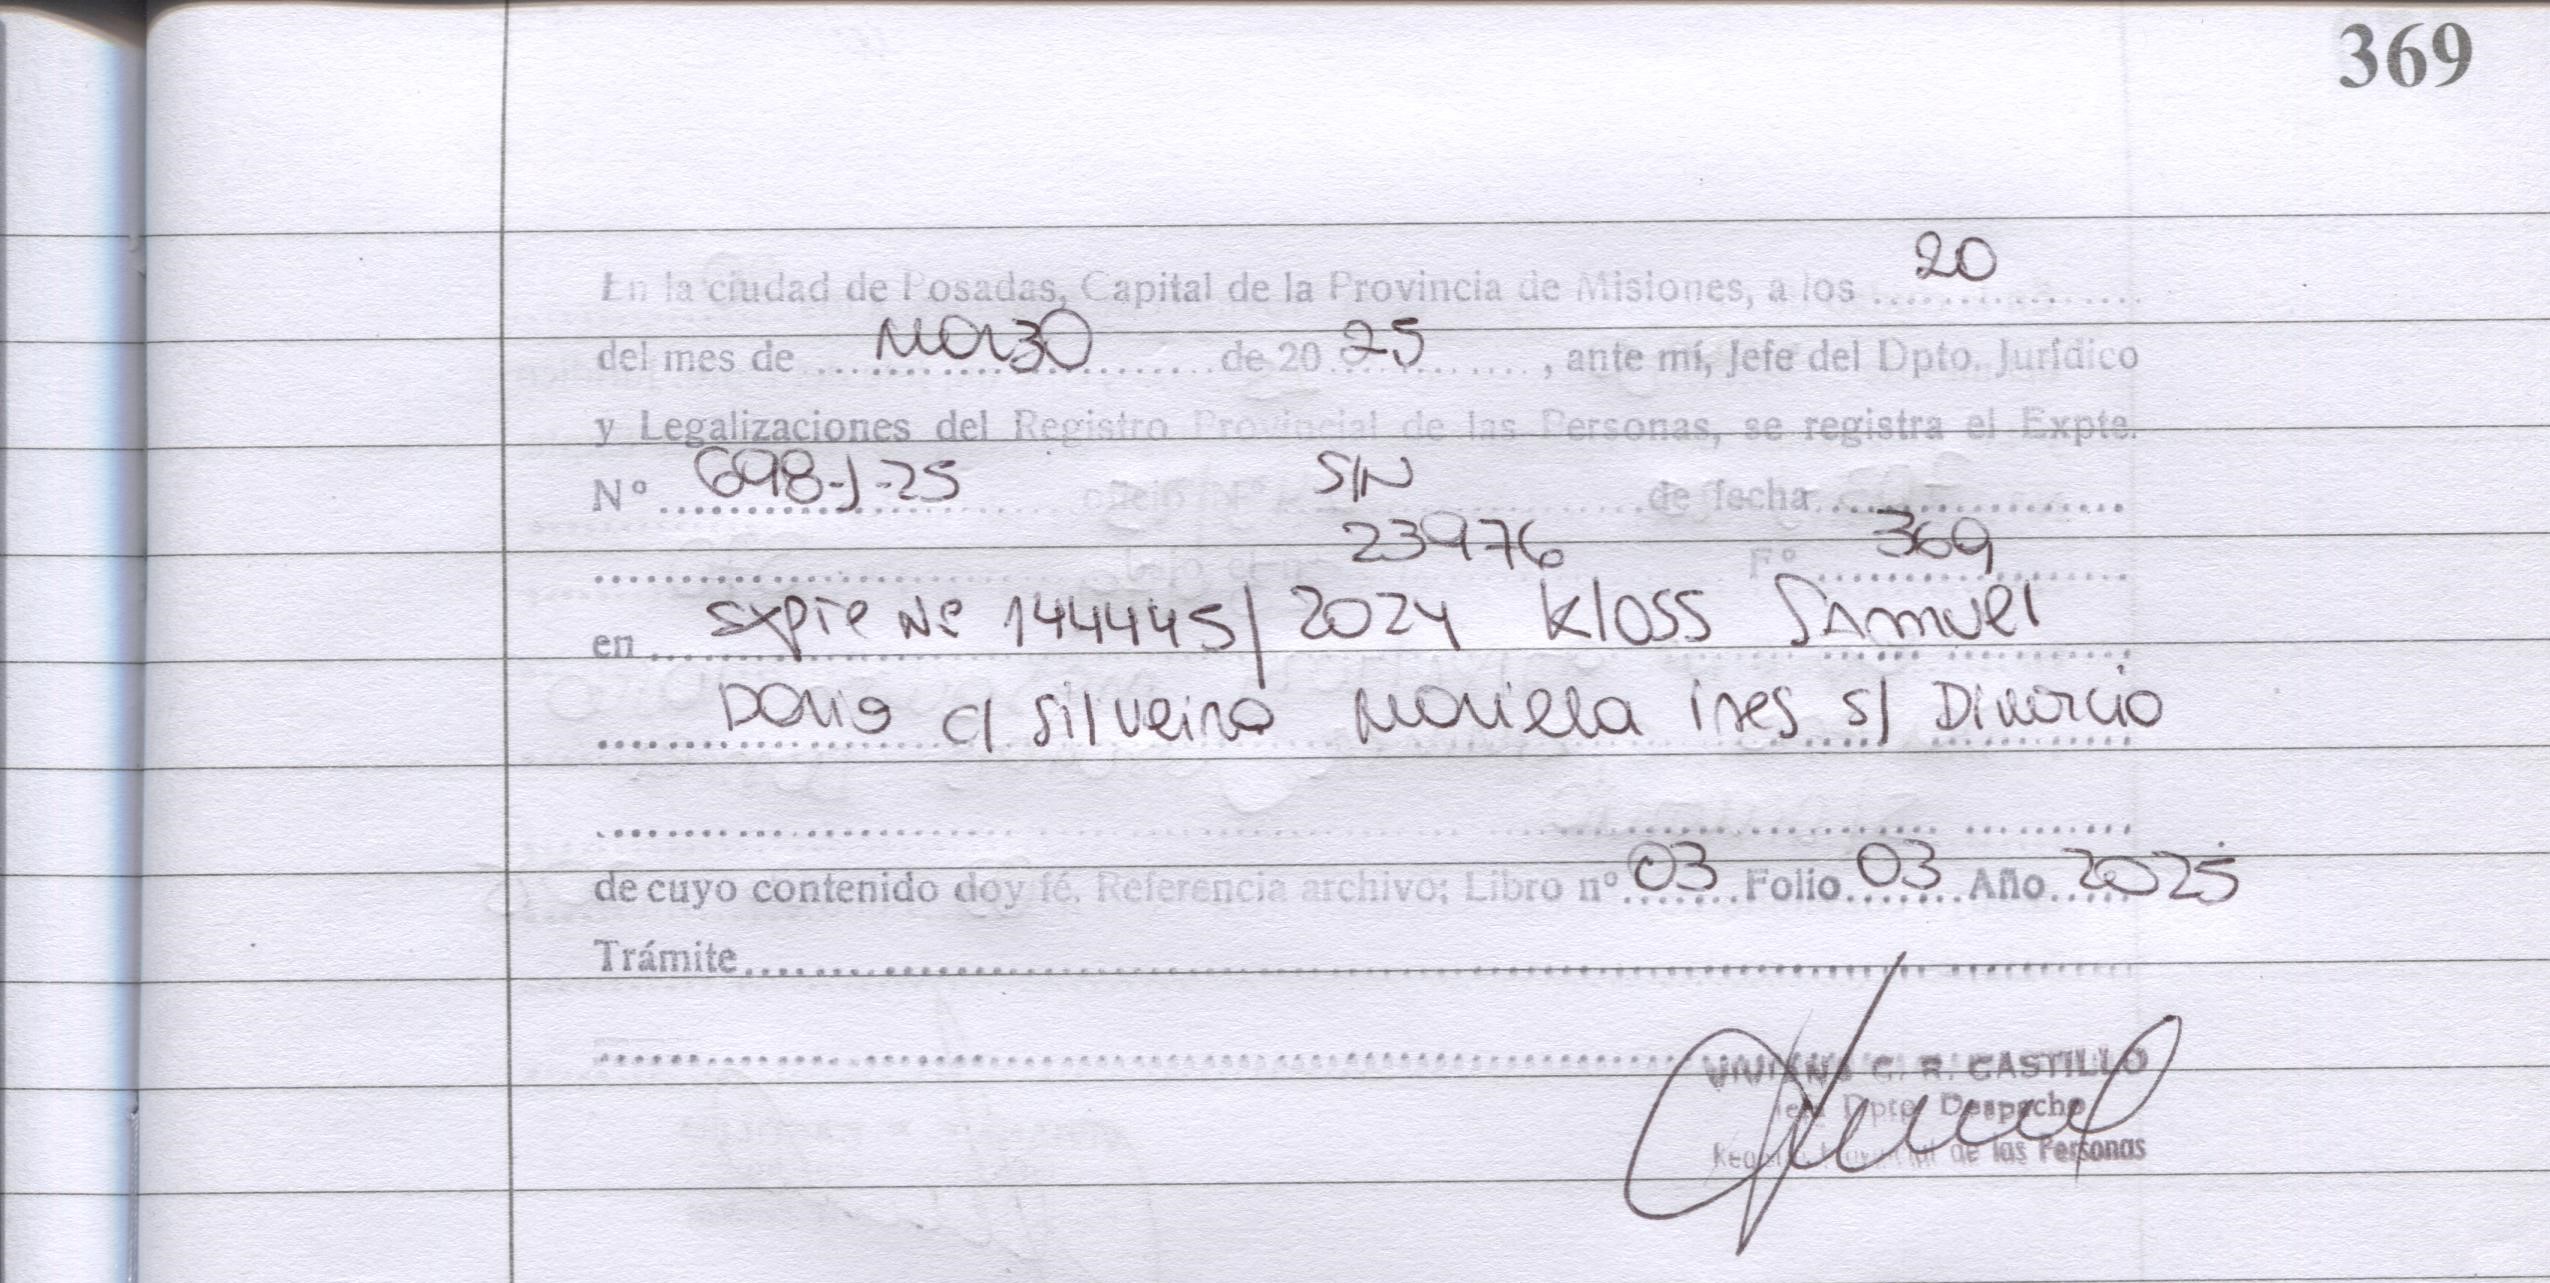 369
En la ciudad de Posadas, Capital de la Provincia de Misiones, a los 20
del mes de Marzo de 20 25, ante mí, Jefe del Dpto. Jurídico
y Legalizaciones del Registro Provincial de las Personas, se registra el Expte.
Nº 698-J-25 oficio Nº S/N de fecha
bajo el nº 23976 Fº 369
en Expte Nº 144445/2024 Kloss Samuel
Dario c/ Silveira Mariella Ines s/ Divorcio
de cuyo contenido doy fé. Referencia archivo: Libro nº 03 Folio 03 Año 2025
Trámite
VIVIANA C. R. CASTILLO
Jefa Dpto. Despacho
Registro Provincial de las Personas